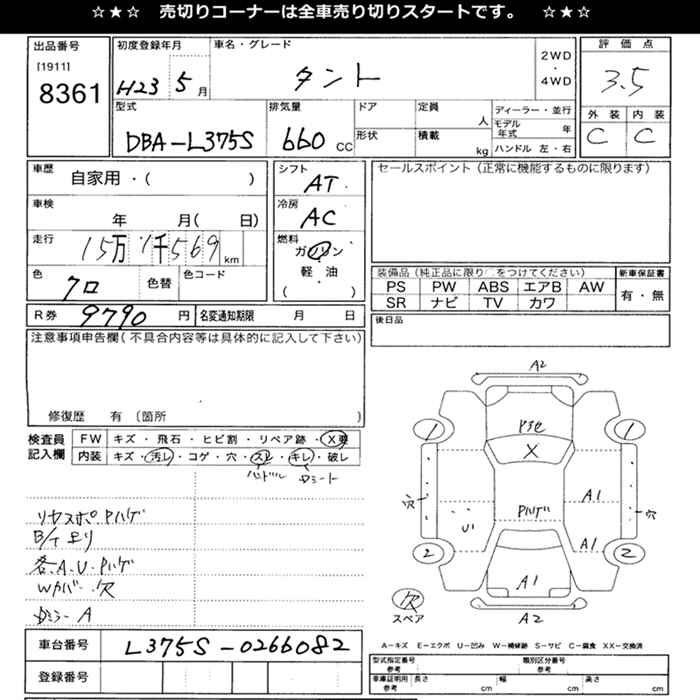 ☆★☆ 売切りコーナーは全車売り切りスタートです。 ☆★☆
出品番号
[1911]
8361
初度登録年月
H23 5 月
車名・グレード
タント
2WD
・
4WD
評価点
3.5
型式
DBA-L375S
排気量
660 CC
ドア
形状
定員
人
積載
kg
ディーラー・並行
モデル年式 年
ハンドル 左・右
外装
C
内装
C
車歴
自家用・( )
シフト
AT
セールスポイント (正常に機能するものに限ります)
車検
年 月( 日)
冷房
AC
走行
15万 1千569 km
燃料
ガソリン
・
軽油
( )
色
クロ
色替
色コード
装備品 (純正品に限り をつけてください)
PS PW ABS エアB AW
SR ナビ TV カワ
新車保証書
有・無
R券
9790 円
名変通知期限 月 日
後日品
注意事項申告欄 (不具合内容等は具体的に記入して下さい)
修復歴 有 (箇所 )
検査員
記入欄
FW キズ・飛石・ヒビ割・リペア跡・X要
内装 キズ・汚レ・コゲ・穴・スレ・キレ・破レ
ハンドル
Dシート
リヤスポPハゲ
各A.U.Pハゲ
Wカバー欠
Dミラー A
車台番号
L375S-0266082
登録番号
A2
1
1
P3セ
X
穴
穴
U
Pハゲ
A1
A1
2
2
A1
欠
スペア
A2
A-キズ E-エクボ U-凹ミ W-補修跡 S-サビ C-腐食 XX-交換済
型式指定番号
参考
類別区分番号
参考
車庫証明用
参考
長さ
cm
幅
cm
高さ
cm